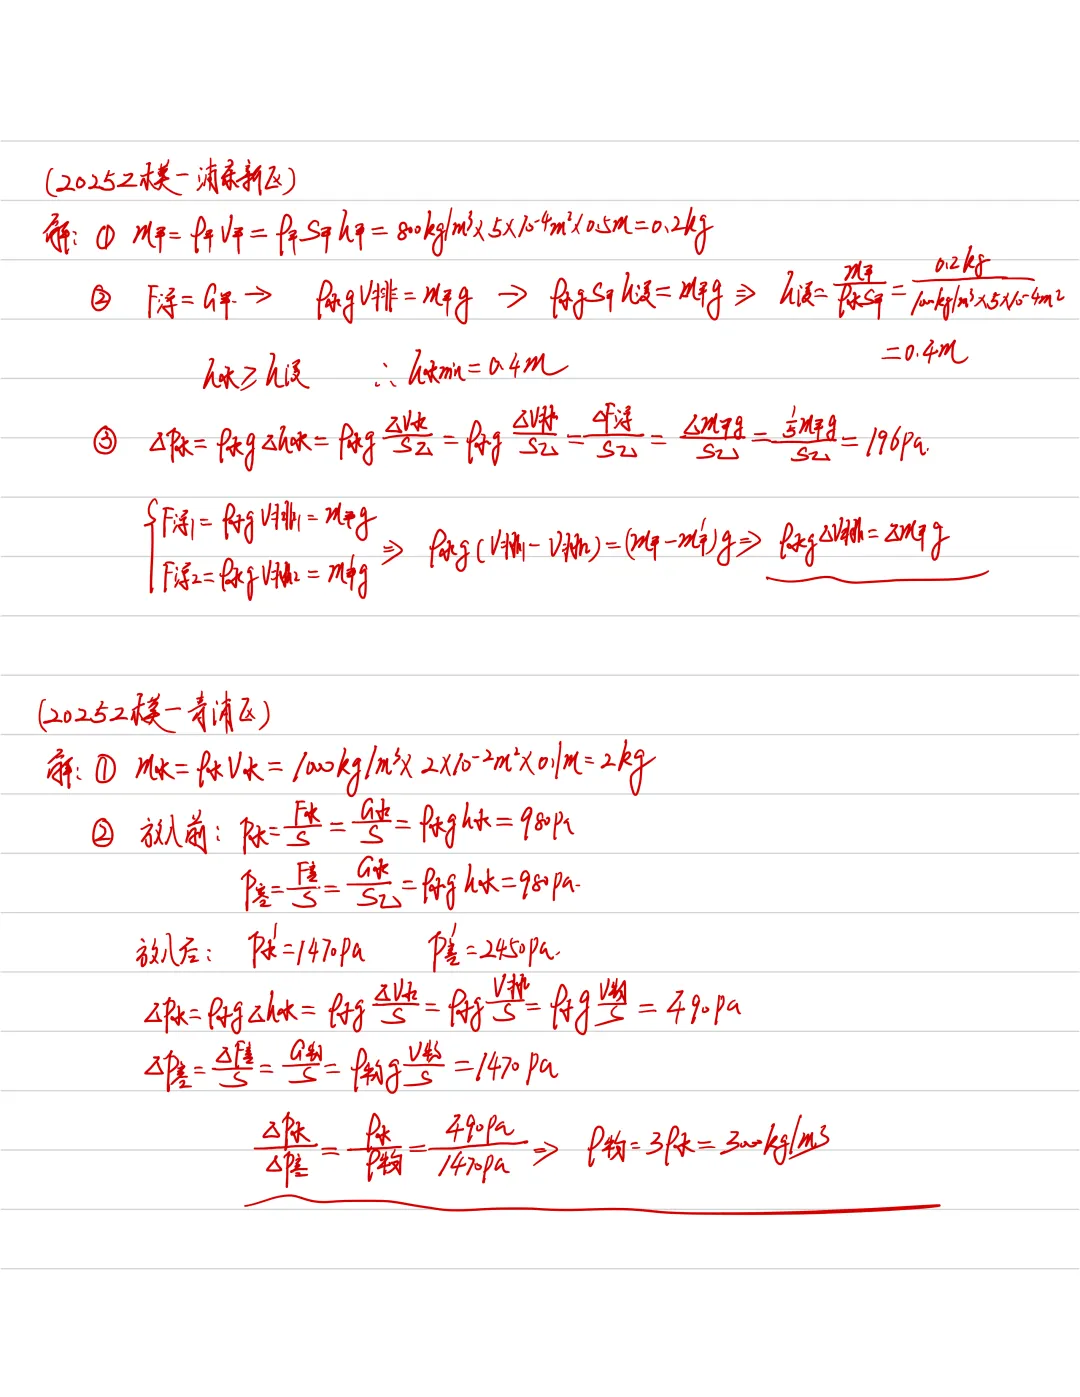 (2025二模一浦东新区)
解: ① m甲 = ρ甲V甲 = ρ甲S甲h甲 = 800kg/m³×5×10⁻⁴m²×0.5m = 0.2kg
② F浮 = G甲 → ρ水gV排 = m甲g → ρ水gS甲h浸 = m甲g ⇒ h浸 = m甲/ρ水S甲 = 0.2kg/1000kg/m³×5×10⁻⁴m²
= 0.4m
h水 ≥ h浸 ∴ h水min = 0.4m
③ Δp水 = ρ水gΔh水 = ρ水g ΔV水/S乙 = ρ水g ΔV排/S乙 = ΔF浮/S乙 = Δm甲g/S乙 = ⅕m甲g/S乙 = 196pa.
{F浮₁ = ρ水gV排₁ = m甲g
F浮₂ = ρ水gV排₂ = m甲'g ⇒ ρ水g(V排₁ - V排₂) = (m甲 - m甲')g ⇒ ρ水gΔV排 = Δm甲g
(2025二模一青浦区)
解: ① m水 = ρ水V水 = 1000kg/m³×2×10⁻²m²×0.1m = 2kg
② 放入前: p水 = F水/S = G水/S = ρ水gh水 = 980pa
p容 = F容/S = G水/S乙 = ρ水gh水 = 980pa.
放入后: p水' = 1470pa p容' = 2450pa.
Δp水 = ρ水gΔh水 = ρ水g ΔV水/S = ρ水g V排/S = ρ水g V物/S = 490pa
Δp容 = ΔF容/S = G物/S = ρ物g V物/S = 1470pa
Δp水/Δp容 = ρ水/ρ物 = 490pa/1470pa ⇒ ρ物 = 3ρ水 = 3000kg/m³